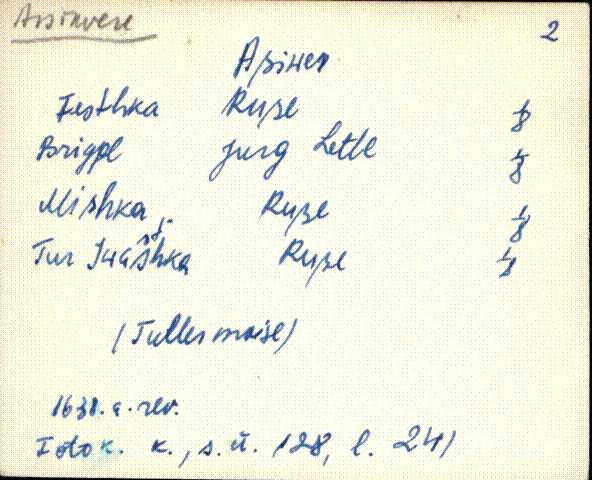 Assinvere
2
Assiwer
Festhka Russe 1/8
Brigpl Jurg Lette 1/8
Mishka Russe 1/8
Tur Iwashka Russe 1/8
(Tullermoise)
1638. a. rev.
Fotok. k., s. ü. 128, l. 241